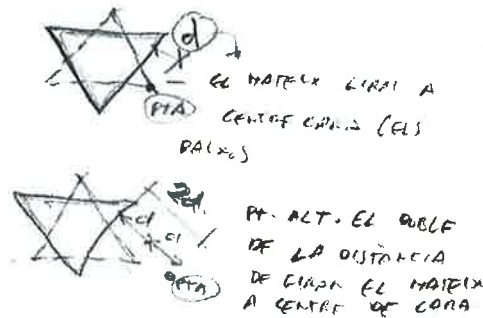 d
EL MATEIX GIRAT A
PTA
CENTRE CARA (ELS
BAIXOS)
2d.
d
d
PT. ALT. EL DOBLE
DE LA DISTÀNCIA
PTA
DE GIRAR EL MATEIX
A CENTRE DE CARA